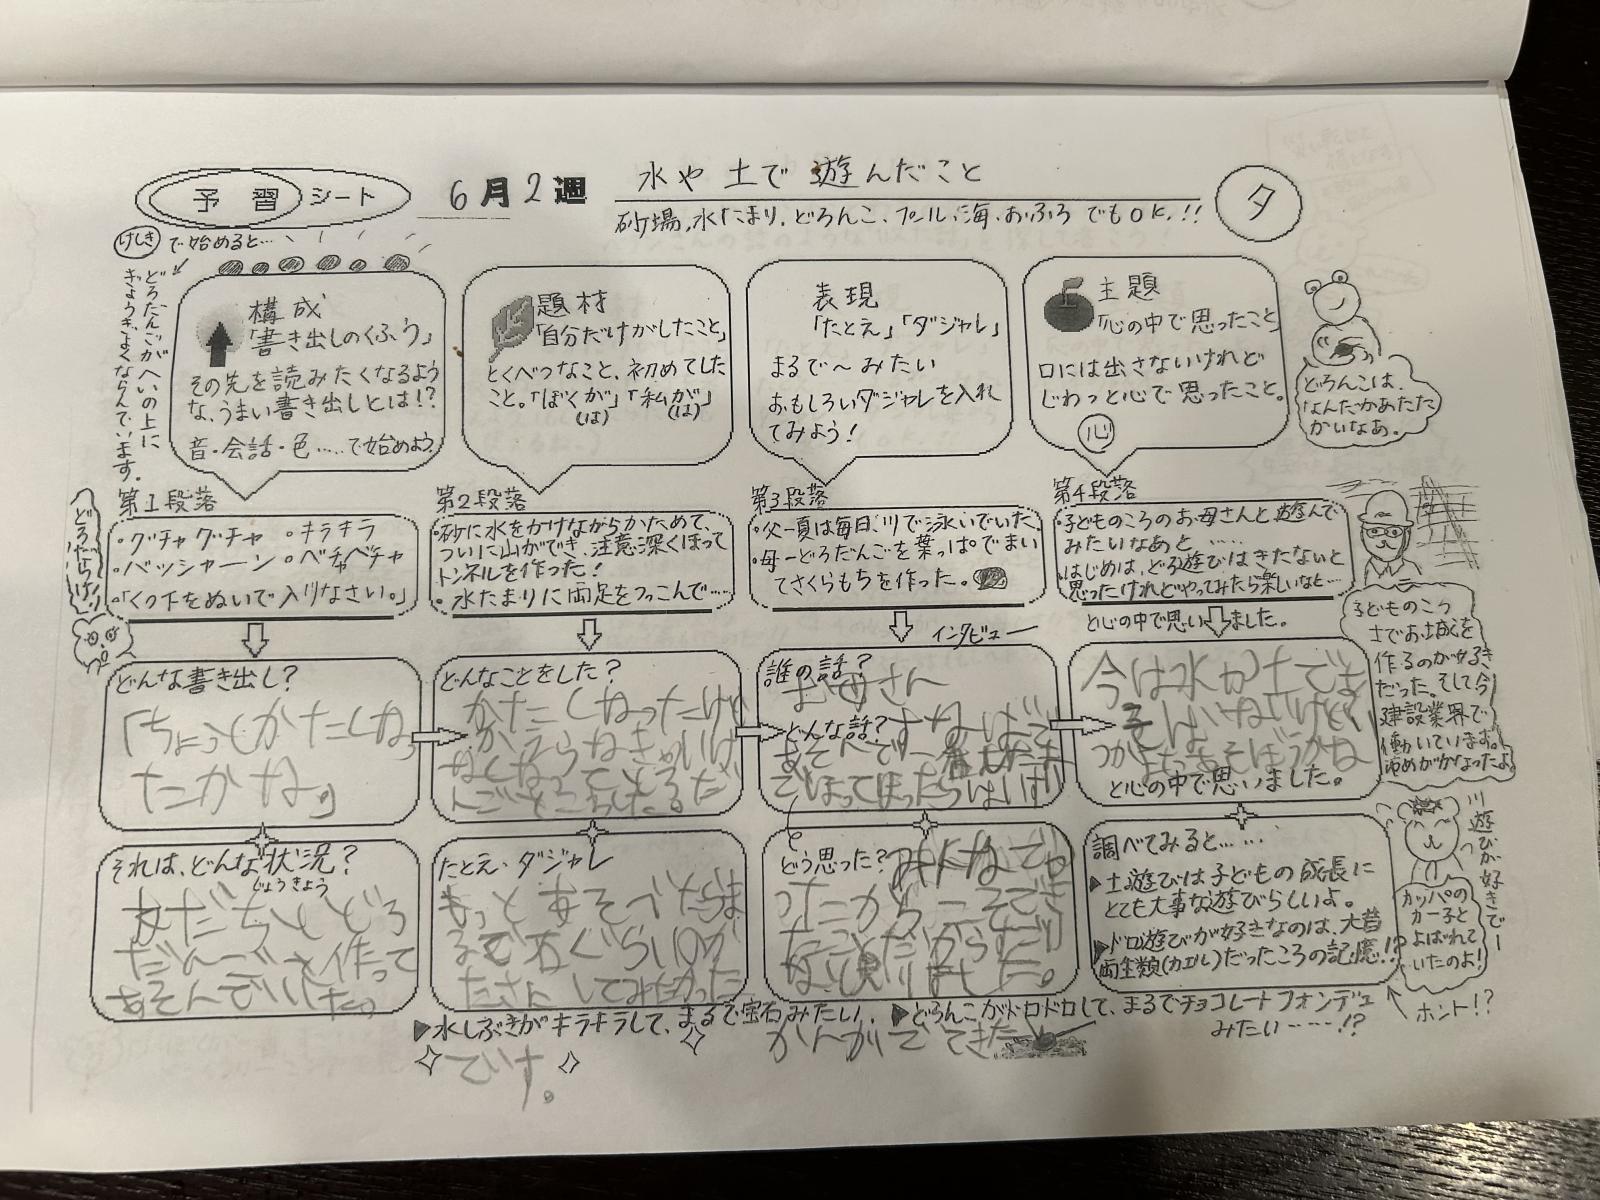 予習シート
6月2週
水や土で遊んだこと
砂場,水たまり,どろんこ、プール,海,おふろ でもOK.!!
夕
けしきで始めると…
どろだんごがへいの上に
ぎょうぎよくならんでいます。
構成
「書き出しのくふう」
その先を読みたくなるよう
な、うまい書き出しとは!?
音・会話・色……で始めよう
題材
「自分だけがしたこと」
とくべつなこと、初めてした
こと。「ぼくが」「私が」
(は) (は)
表現
「たとえ」「ダジャレ」
まるで〜みたい
おもしろいダジャレを入れ
てみよう!
主題
「心の中で思ったこと」
口には出さないけれど
じわっと心で思ったこと。
心
どろんこは、
なんだかあたた
かいなあ。
どろだらけ!
第1段落
・グチャグチャ ・キラキラ
・バッシャーン ・ベチャベチャ
・「くつ下をぬいで入りなさい。」
第2段落
・砂に水をかけながらかためて、
ついに山ができ、注意深くほって
トンネルを作った!
・水たまりに両足をつっこんで……
第3段落
・父ー夏は毎日川で泳いでいた。
・母ーどろだんごを葉っぱでまい
てさくらもちを作った。
第4段落
・子どものころのお母さんと遊んで
みたいなあと……
・はじめは、どろ遊びはきたないと
思ったけれどやってみたら楽しいなと…
と心の中で思いました。
インタビュー
子どものころ
土でお城を
作るのが好き
だった。そして今
建設業界で
働いています。
ゆめがかなったよ。
どんな書き出し?
「ちょっとかたくねっ
たかな。」
どんなことをした?
かたくねったけど
誰の話?
お母さん
どんな話?
今は水か土でも
と心の中で思いました。
それは、どんな状況?
じょうきょう
友だちとどろ
だんごを作って
あそんでいた。
たとえ・ダジャレ
もっとあそべたらま
るで石ぐらいのが
たさに してみたかった
です。
どう思った?
調べてみると……
▶土遊びは子どもの成長に
とても大事な遊びらしいよ。
▶ドロ遊びが好きなのは、大昔
両生類(カエル)だったころの記憶!?
ホント!?
川遊びが好きでー
カッパの
カー子と
よばれて
いたのよ!
▶水しぶきがキラキラして、まるで宝石みたい.
▶どろんこがドロドロして、まるでチョコレートフォンデュ
みたい……!?